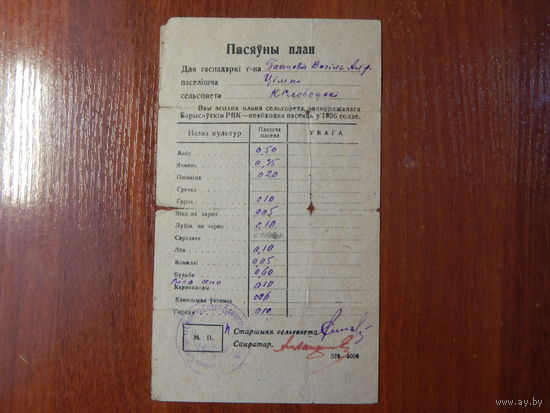 Пасяўны план
Для гаспадаркі г-на Василь
паселішча
сельсовета
Вам згодна плана сельсовета, зацверджанага
Барысаўскім РВК—неабходна пасеяць у 1936 годзе.
Назва культур Плошча пасева УВАГА
Авёс 0,50
Ячмень 0,35
Пшаніца 0,20
Грэчка
Гарох 0,10
Віка на зярно 0,05
Лубін на зярно 0,10
Сарадэля
Лён 0,10
Каноплі 0,05
Бульба 0,60
Карняплоды 0,10
Канюшына
Гарод
М. П.
Старшыня сельсовета
Сакратар.
573—5000
www.ay.by